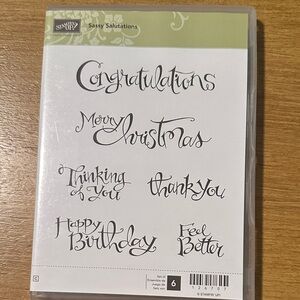 STAMPIN' UP!
Sassy Salutations
Congratulations
Merry Christmas
Thinking of You
thank you
Happy Birthday
Feel Better
Set of
Ensemble de
Juego de
6